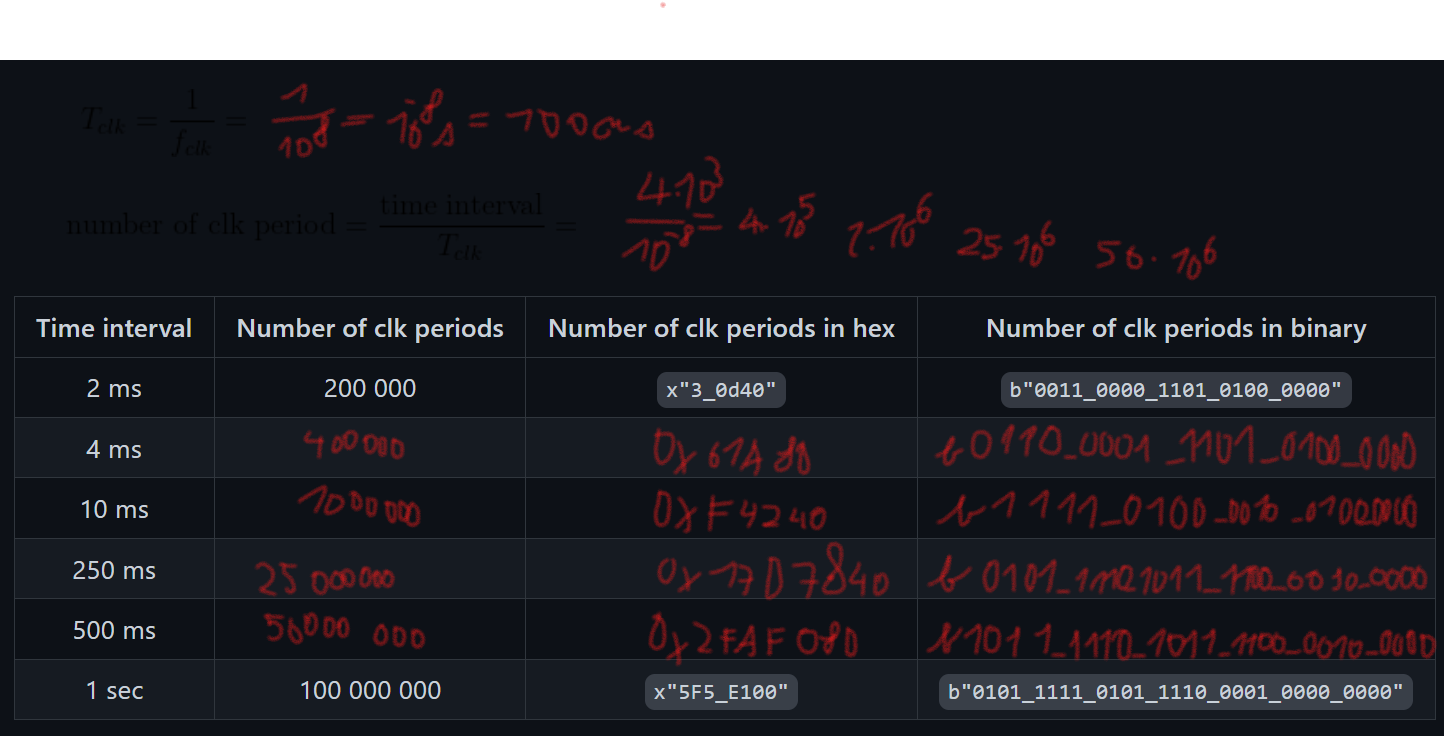 T_clk = 1/f_clk = 1/10^8 = 10^-8 s = 100ns
number of clk period = time interval/T_clk = 4.10^3/10^-8 = 4.10^5 1.10^6 25.10^6 50.10^6
Time interval Number of clk periods Number of clk periods in hex Number of clk periods in binary
2 ms 200 000 x"3_0d40" b"0011_0000_1101_0100_0000"
4 ms 400000 0x61A80 b0110_0001_1101_0100_0000
10 ms 1000000 0xF4240 b1111_0100_0010_01000000
250 ms 25 000000 0x17D7840
500 ms 50000 000 0x2FAF080 b1011_1110_1011_1100_0010_0000
1 sec 100 000 000 x"5F5_E100" b"0101_1111_0101_1110_0001_0000_0000"